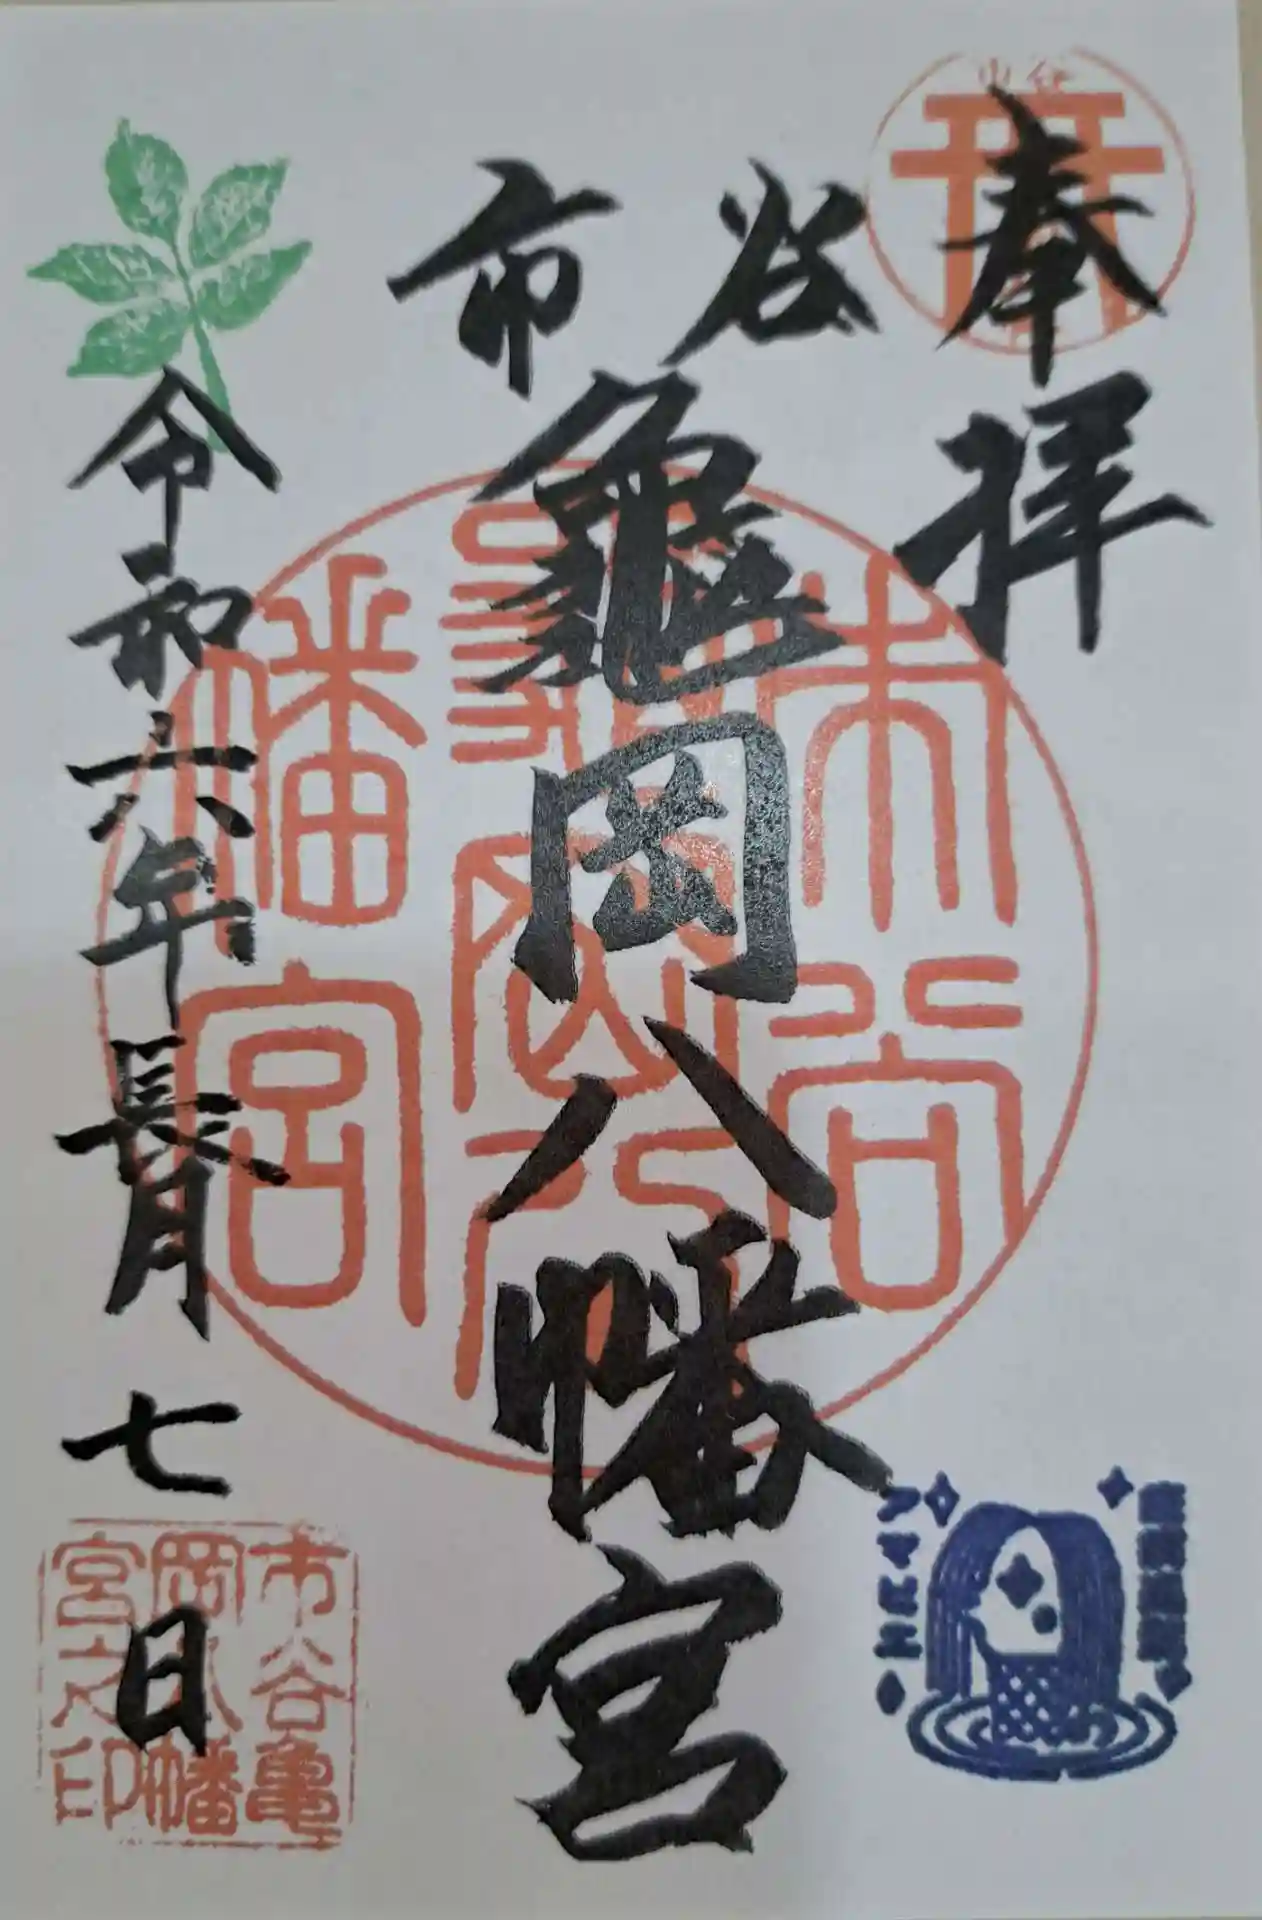 奉拝
市谷
龜岡八幡宮
令和六年長月七日
市谷
龜岡八
幡宮
市谷亀
岡八幡
宮之印
アマビエ